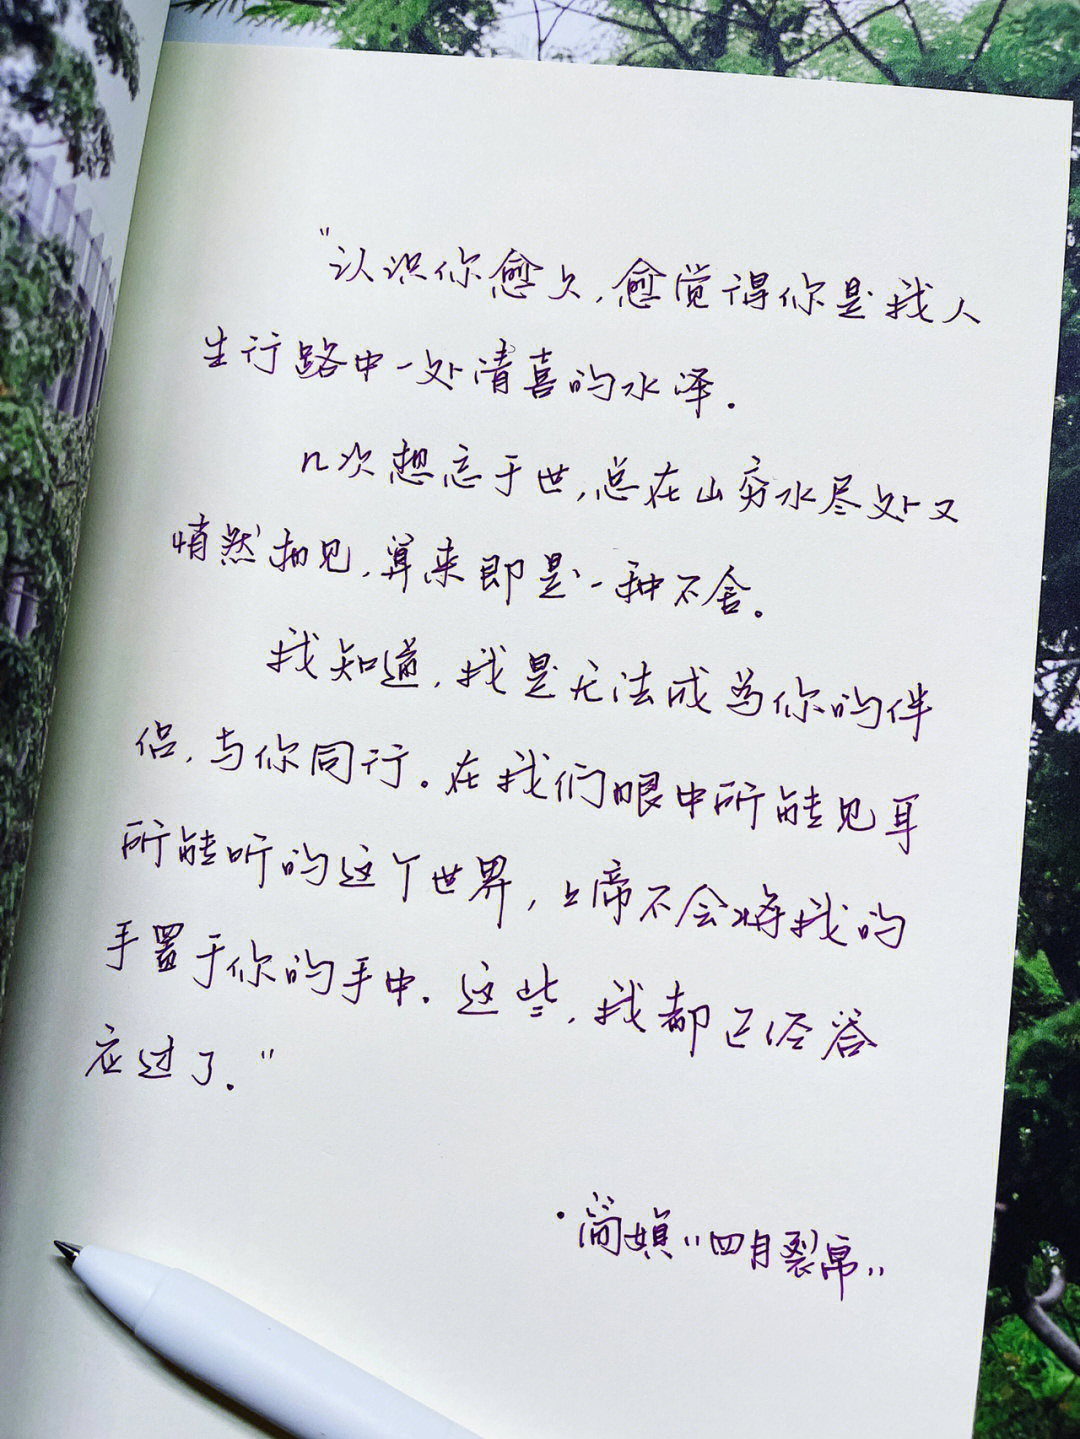 “认识你愈久，愈觉得你是我人
生行路中一处清喜的水泽.
几次想忘于世，总在山穷水尽处又
悄然相见，算来即是一种不舍。
我知道，我是无法成为你的伴
侣，与你同行。在我们眼中所能见耳
所能听的这个世界，上帝不会将我的
手置于你的手中.这些，我都已经答
应过了.”
·简媜“四月裂帛”